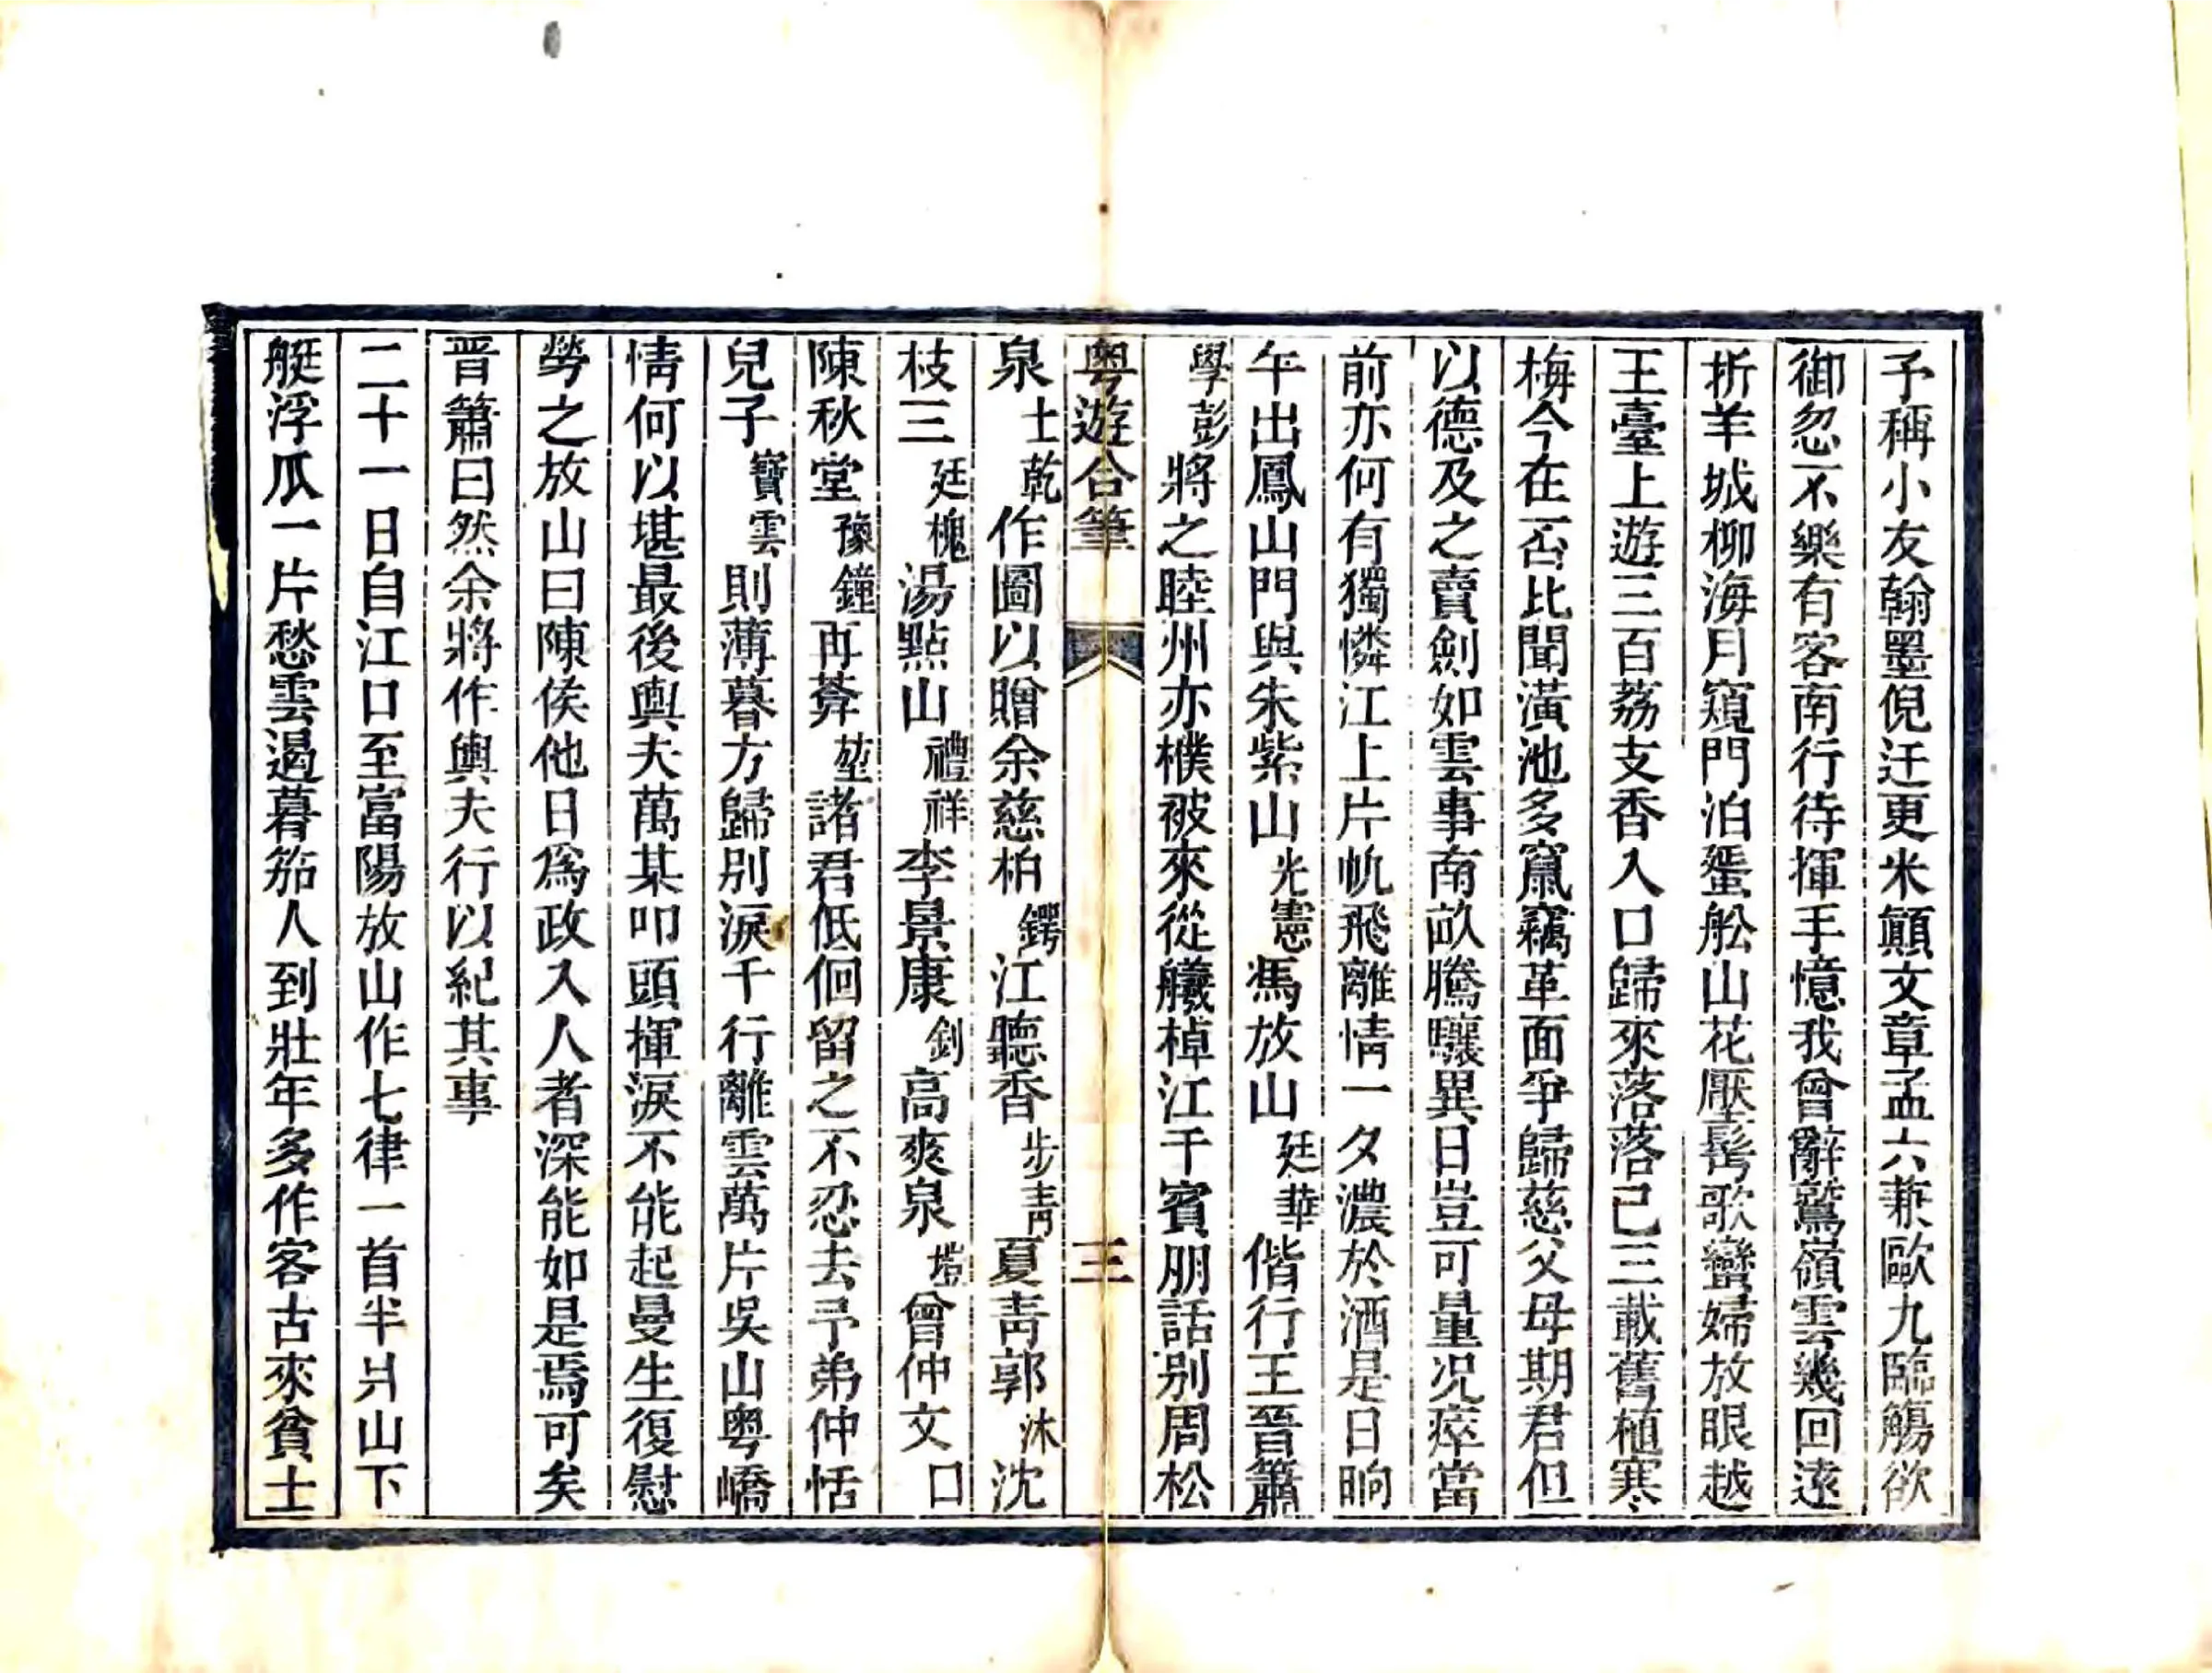 予稱小友翰墨倪迂更米顚文章孟六兼歐九臨觴欲
御忽不樂有客南行待揮手憶我曾辭鷲嶺雲幾回遠
折羊城柳海月窺門泊蜑舩山花壓髩歌蠻婦放眼越
王臺上遊三百荔支香入口歸來落落已三載舊植寒
梅今在否比聞潢池多竄竊革面爭歸慈父母期君但
以德及之賣劍如雲事南畝騰驤異日豈可量况瘁當
前亦何有獨憐江上片帆飛離情一夕濃於酒是日晌
午出鳳山門與朱紫山光憲馮放山廷華偕行王晉簫
學彭將之睦州亦樸被來從艤棹江干賓朋話别周松
粤遊合筆 三
泉士乾作圖以贈余慈柏鍔江聽香步青夏青郭沐沈
枝三廷槐湯點山禮祥李景康釗高爽泉塏曾仲文口
陳秋堂豫鐘再莾堃諸君低佪留之不忍去予弟仲恬
兒子寶雲則薄暮方歸别淚千行離雲萬片吳山粤嶠
情何以堪最後輿夫萬某叩頭揮淚不能起曼生復慰
勞之放山曰陳侯他日爲政入人者深能如是焉可矣
晋簫曰然余將作輿夫行以紀其事
二十一日自江口至富陽放山作七律一首半爿山下
艇浮瓜一片愁雲遏暮笳人到壯年多作客古來貧士